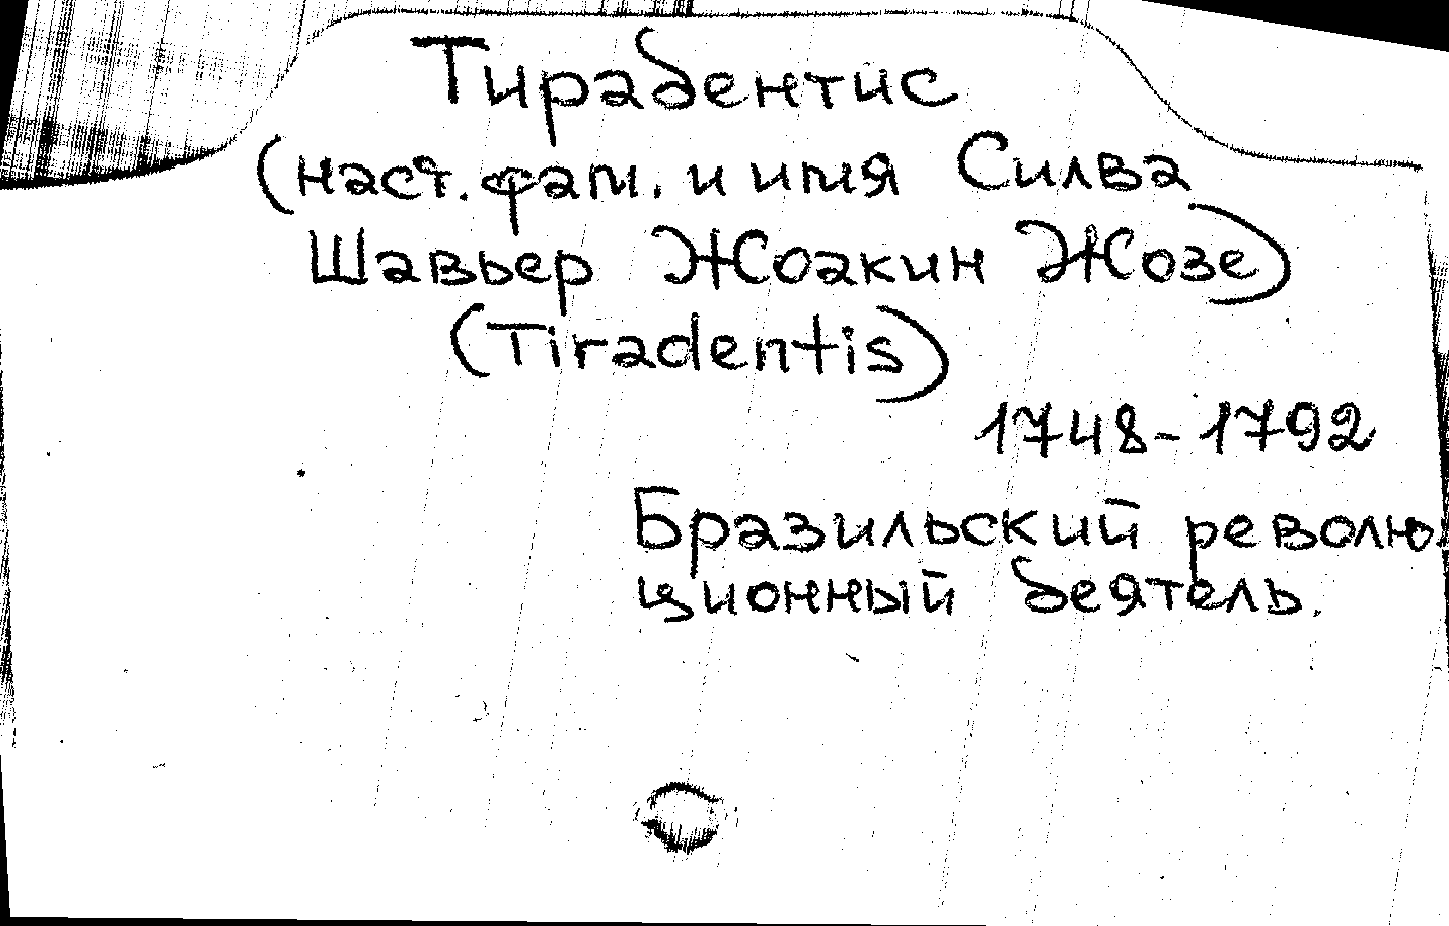 Тирадентис
(наст. фам. и имя Силва
Шавьер Жоакин Жозе)
(Tiradentis)
1748-1792
Бразильский револю-
ционный деятель.